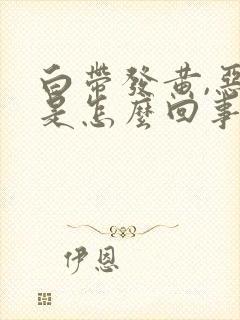 白帶發黃,惡
是怎麼回事
伊恩